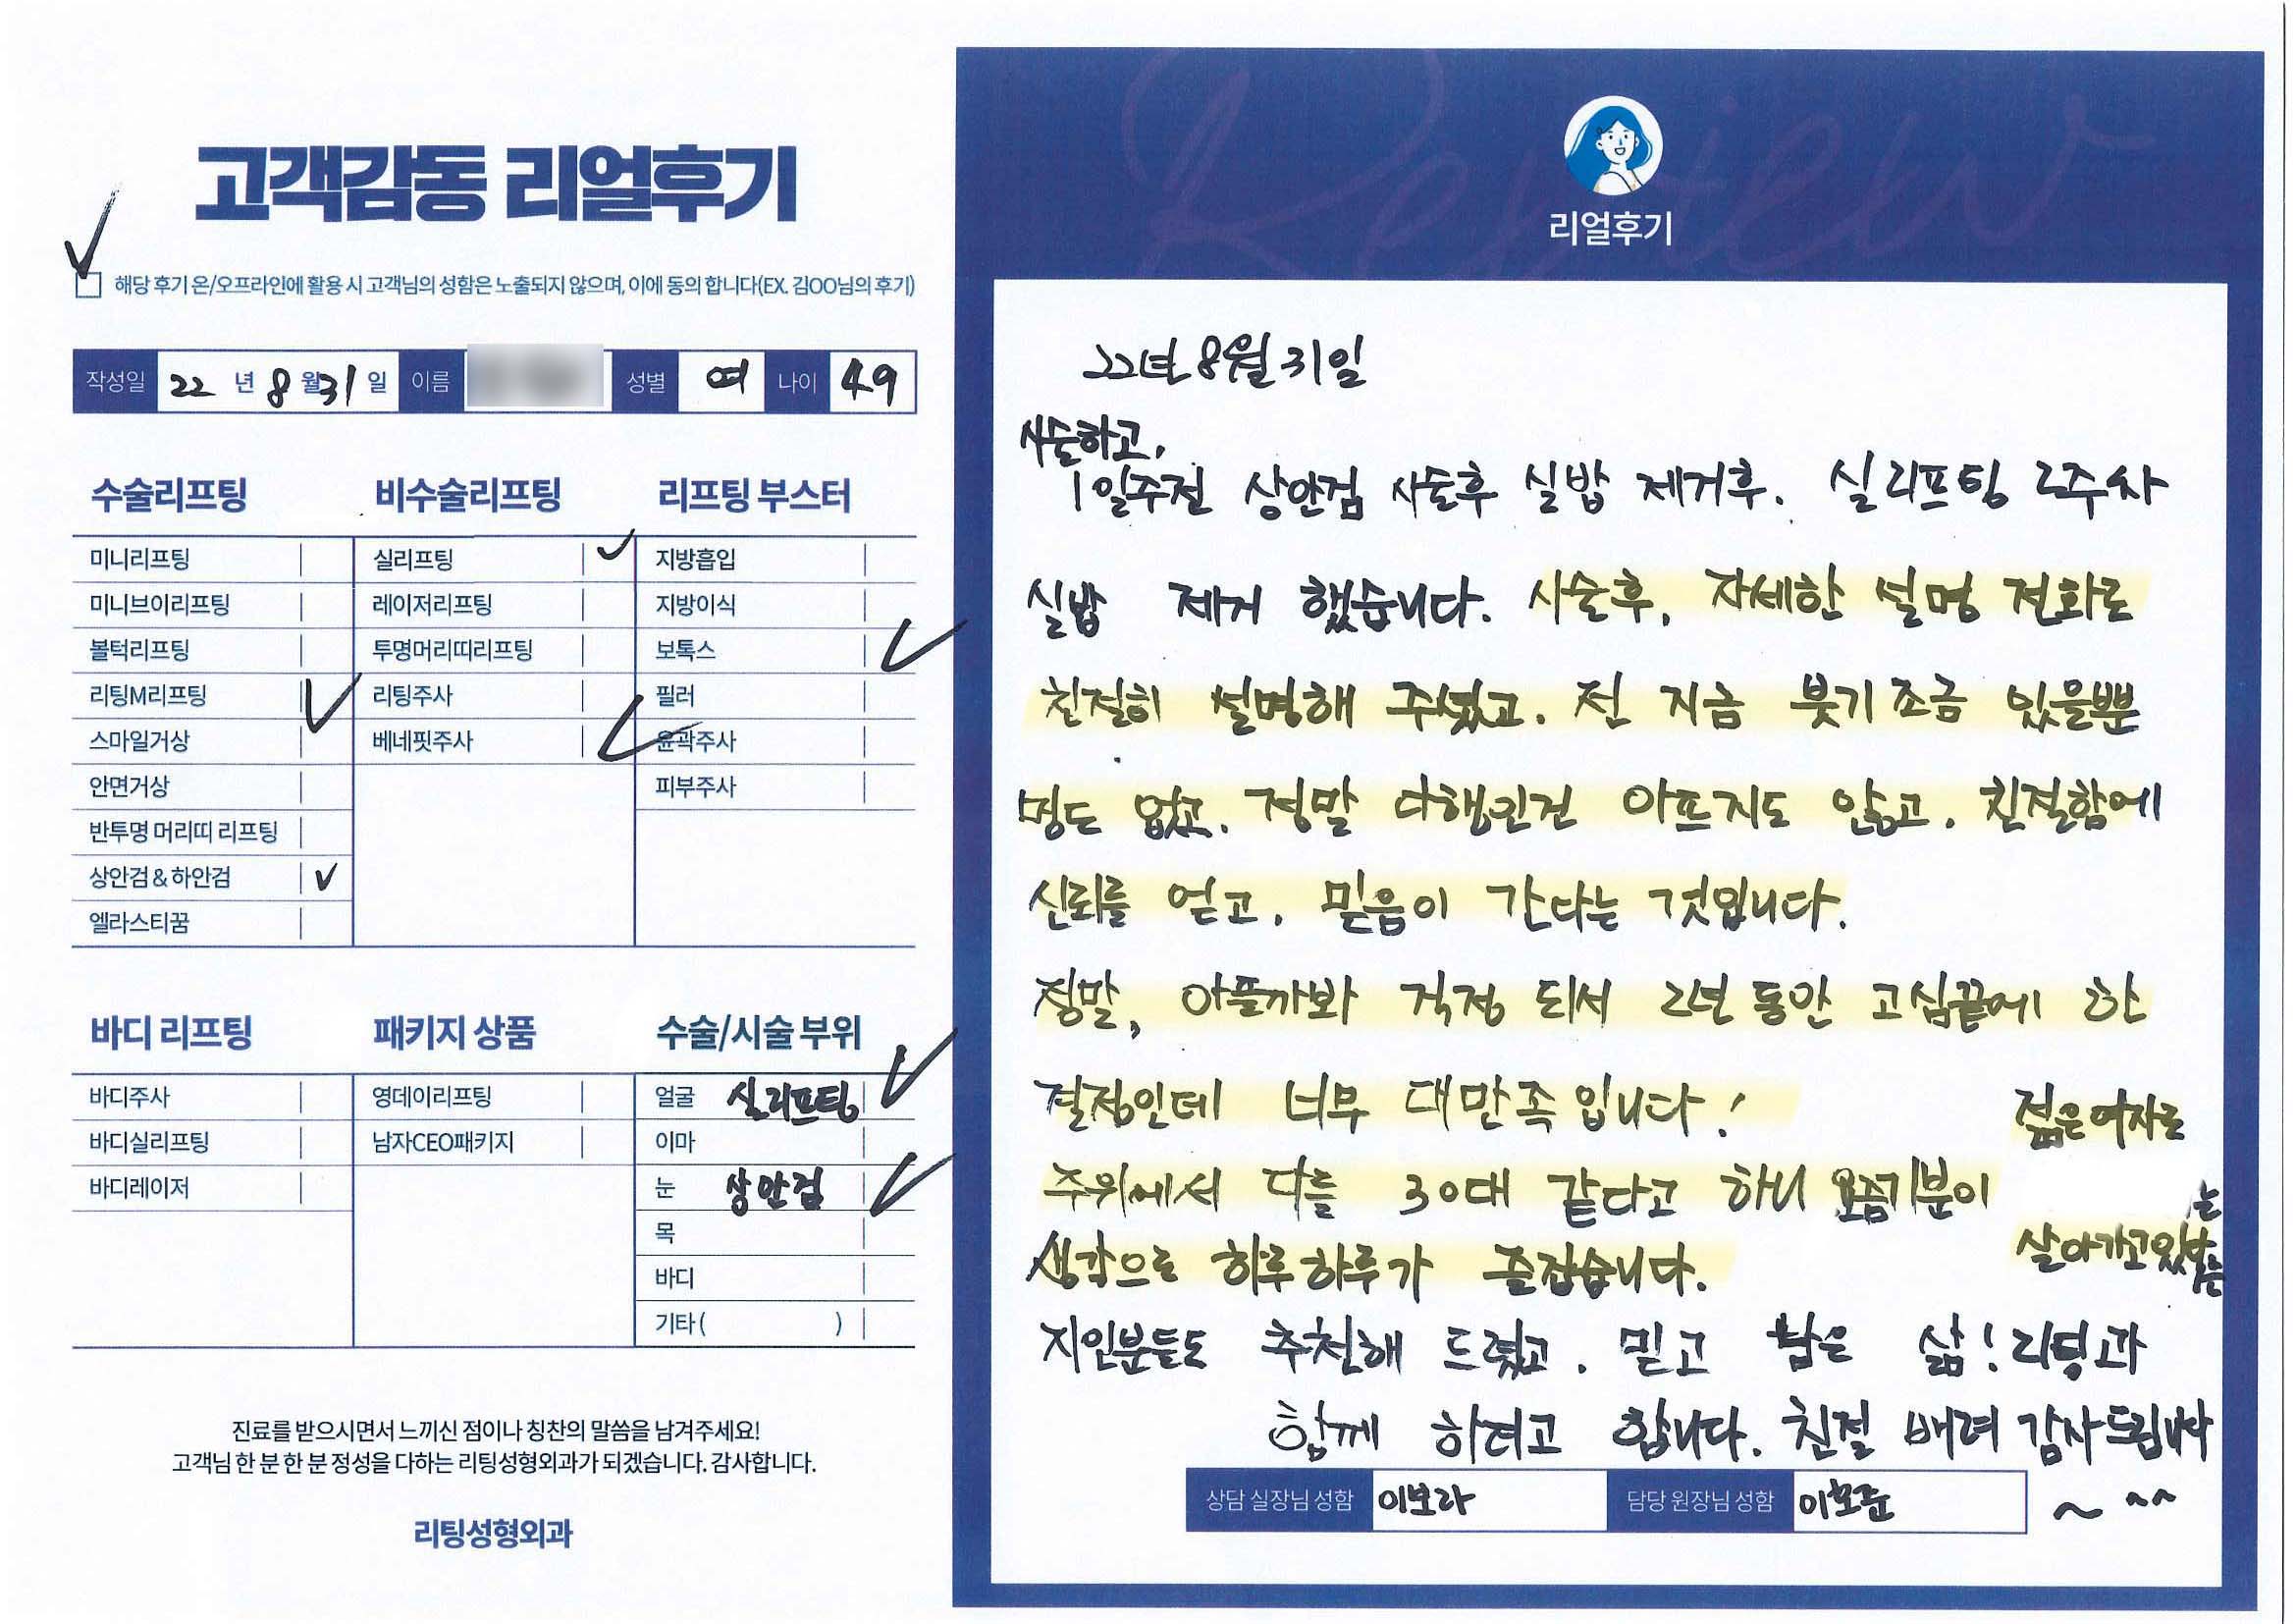 고객감동 리얼후기
해당 후기 온/오프라인에 활용 시 고객님의 성함은 노출되지 않으며, 이에 동의 합니다(EX. 김OO님의 후기)
작성일 22 년 8 월 31 일 이름 성별 여 나이 49
수술리프팅
미니리프팅
미니브이리프팅
볼턱리프팅
리팅M리프팅
스마일거상
안면거상
반투명 머리띠 리프팅
상안검 & 하안검
엘라스티꿈
비수술리프팅
실리프팅
레이저리프팅
투명머리띠리프팅
리팅주사
베네핏주사
리프팅 부스터
지방흡입
지방이식
보톡스
필러
윤곽주사
피부주사
바디 리프팅
바디주사
바디실리프팅
바디레이저
패키지 상품
영데이리프팅
남자CEO패키지
수술/시술 부위
얼굴 실리프팅
이마
눈 상안검
목
바디
기타 ( )
진료를 받으시면서 느끼신 점이나 칭찬의 말씀을 남겨주세요!
고객님 한 분 한 분 정성을 다하는 리팅성형외과가 되겠습니다. 감사합니다.
리팅성형외과
Review
리얼후기
22년 8월 31일
시술하고,
1일주전 상안검 시술후 실밥 제거후. 실리프팅 2주차
실밥 제거 했습니다. 시술후, 자세한 설명 전화로
친절히 설명해 주셨고. 전 지금 붓기 조금 있을뿐
멍도 없고. 정말 다행인건 아프지도 않고. 친절함에
신뢰를 얻고. 믿음이 간다는 것입니다.
정말, 아플까봐 걱정 되서 2년 동안 고심끝에 한
결정인데 너무 대만족 입니다!
주위에서 다들 30대 같다고 하니 요즘기분이
젊은여자로
살아가고있는
생각으로 하루하루가 즐겁습니다.
지인분들도 추천해 드렸고. 믿고 남은 삶! 리팅과
함께 하려고 합니다. 친절 배려 감사드립니다
~ ^^
상담 실장님 성함 이보라 담당 원장님 성함 이호준